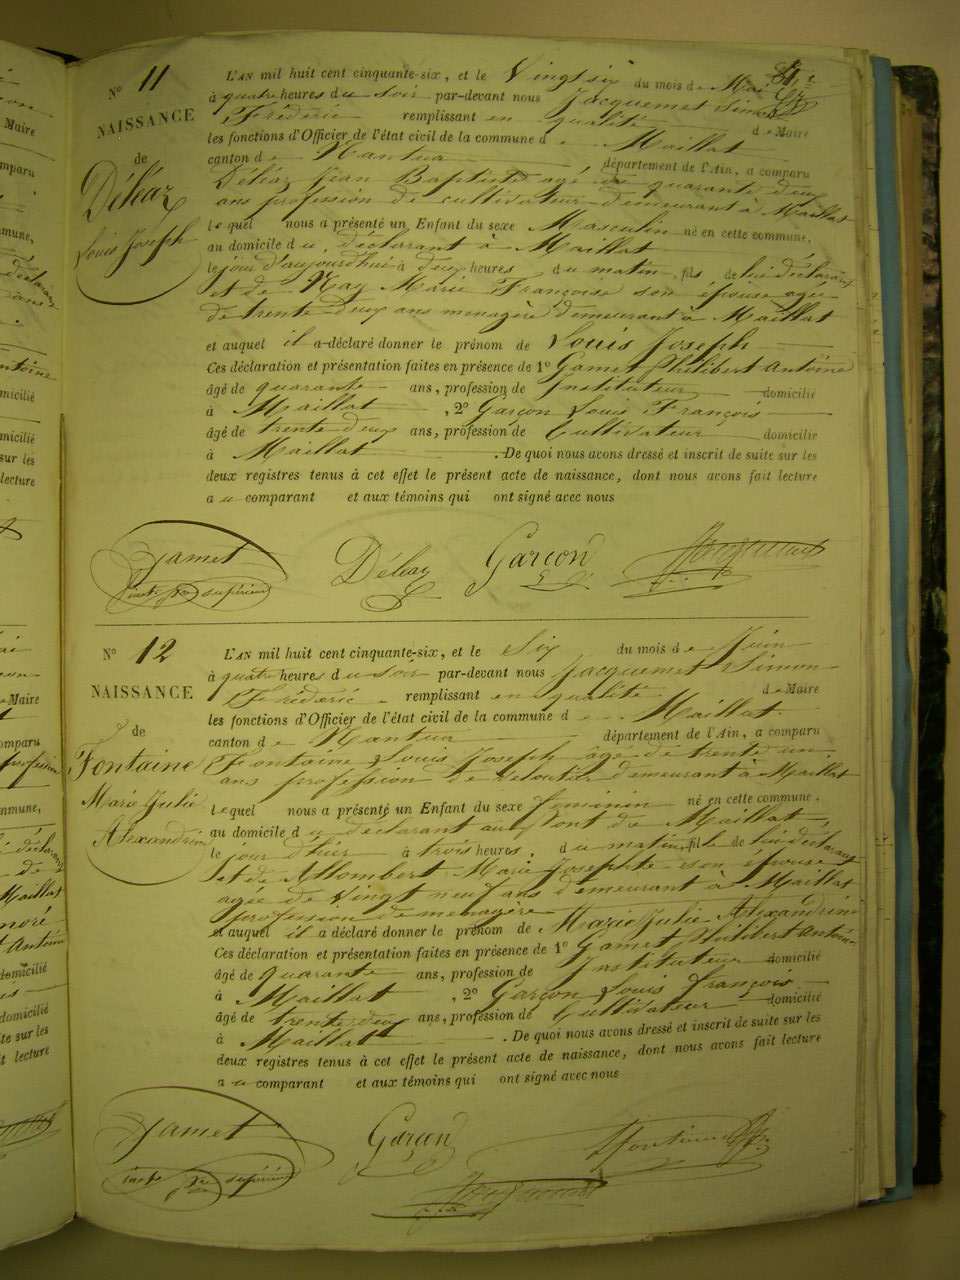 N° 11
NAISSANCE
de
Déléaz
Louis Joseph
L'AN mil huit cent cinquante-six, et le Vingt six du mois de Mai
à quatre heures du soir par-devant nous Jacquemet Simon
Frédéric remplissant en qualité de Maire
les fonctions d'Officier de l'état civil de la commune de Maillat
canton de Nantua département de l'Ain, a comparu
Déléaz Jean Baptiste agé de quarante deux
ans profession de cultivateur demeurant à Maillat
lequel nous a présenté un Enfant du sexe Masculin né en cette commune,
au domicile du déclarant à Maillat
le jour d'aujourdhui à deux heures du matin, fils de lui déclarant
et de Nay Marie Françoise son épouse agée
de trente deux ans menagère demeurant à Maillat
et auquel il a déclaré donner le prénom de Louis Joseph
Ces déclaration et présentation faites en présence de 1° Gamet Philibert Antoine
âgé de quarante ans, profession de Instituteur domicilié
à Maillat, 2° Garçon Louis François
âgé de trente deux ans, profession de Cultivateur domicilié
à Maillat. De quoi nous avons dressé et inscrit de suite sur les
deux registres tenus à cet effet le présent acte de naissance, dont nous avons fait lecture
au comparant et aux témoins qui ont signé avec nous
Gamet Déléaz Garçon Jacquemet
instr supérieur
N° 12
NAISSANCE
de
Fontaine
Marie Julie
Alexandrine
L'AN mil huit cent cinquante-six, et le Six du mois de Juin
à quatre heures du soir par-devant nous Jacquemet Simon
Frédéric remplissant en qualité de Maire
les fonctions d'Officier de l'état civil de la commune de Maillat
canton de Nantua département de l'Ain, a comparu
Fontaine Louis Joseph âgé de trente un
ans profession de demeurant à Maillat
lequel nous a présenté un Enfant du sexe feminin né en cette commune,
au domicile du déclarant au Pont de Maillat,
le jour d'hier à trois heures, du matin, fille de lui déclarant
et de Allombert Marie Josephte son épouse
agée de Vingt neuf ans demeurant à Maillat
profession de menagère
et auquel il a déclaré donner le prénom de Marie Julie Alexandrine
Ces déclaration et présentation faites en présence de 1° Gamet Philibert Antoine
âgé de quarante ans, profession de Instituteur domicilié
à Maillat, 2° Garçon Louis François
âgé de trente deux ans, profession de Cultivateur domicilié
à Maillat. De quoi nous avons dressé et inscrit de suite sur les
deux registres tenus à cet effet le présent acte de naissance, dont nous avons fait lecture
au comparant et aux témoins qui ont signé avec nous
Gamet Garçon Fontaine
supérieur
Jacquemet